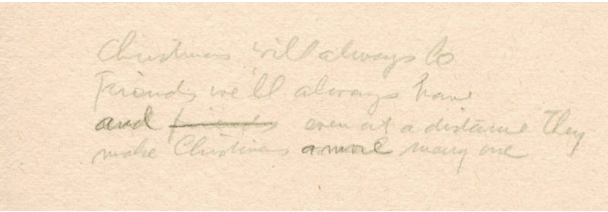 Christmas will always be
Friends we'll always have
and friends even at a distance They
make Christmas a more merry one